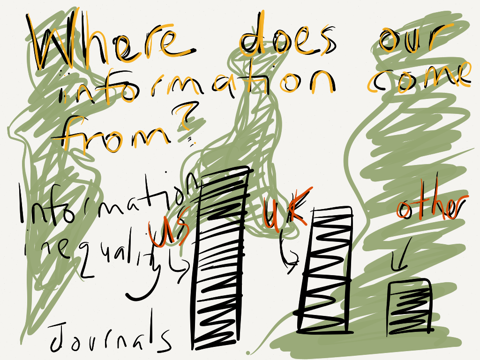 Where does our
information come
from?
Information
inequality
US
UK
other
Journals